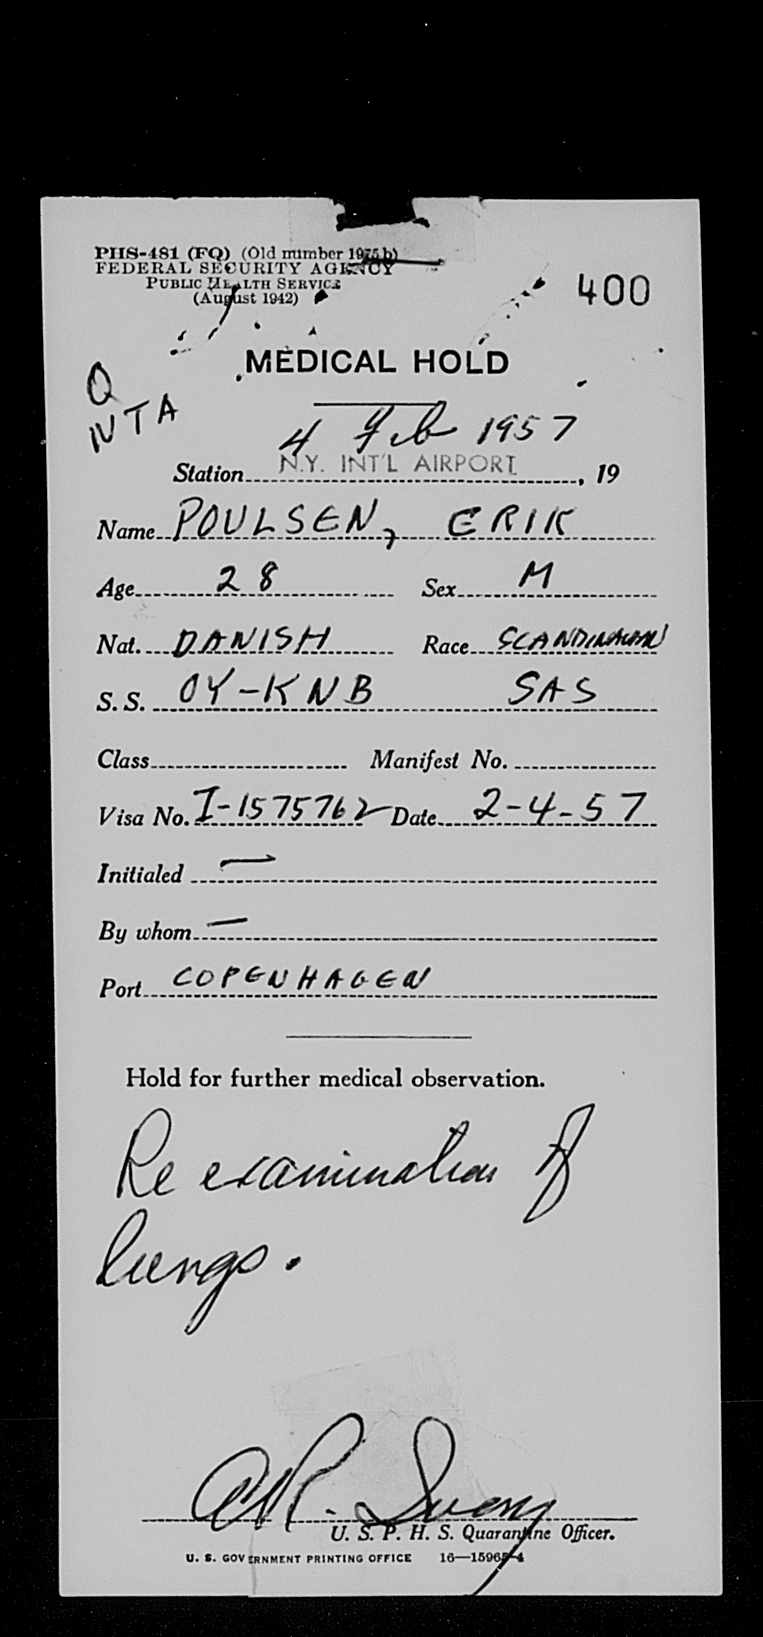 PHS-481 (FQ) (Old number 1975b)
FEDERAL SECURITY AGENCY
PUBLIC HEALTH SERVICE
(August 1942)
400
MEDICAL HOLD
Q
NTA
4 Feb 1957
Station N.Y. INT'L AIRPORT, 19
Name POULSEN, ERIK
Age 28 Sex M
Nat. DANISH Race SCANDINAVIAN
S. S. OY-KNB SAS
Class Manifest No.
Visa No. I-1575762 Date 2-4-57
Initialed —
By whom —
Port COPENHAGEN
Hold for further medical observation.
Re examination of
lungs.
U. S. P. H. S. Quarantine Officer.
U. S. GOVERNMENT PRINTING OFFICE 16—15965-4